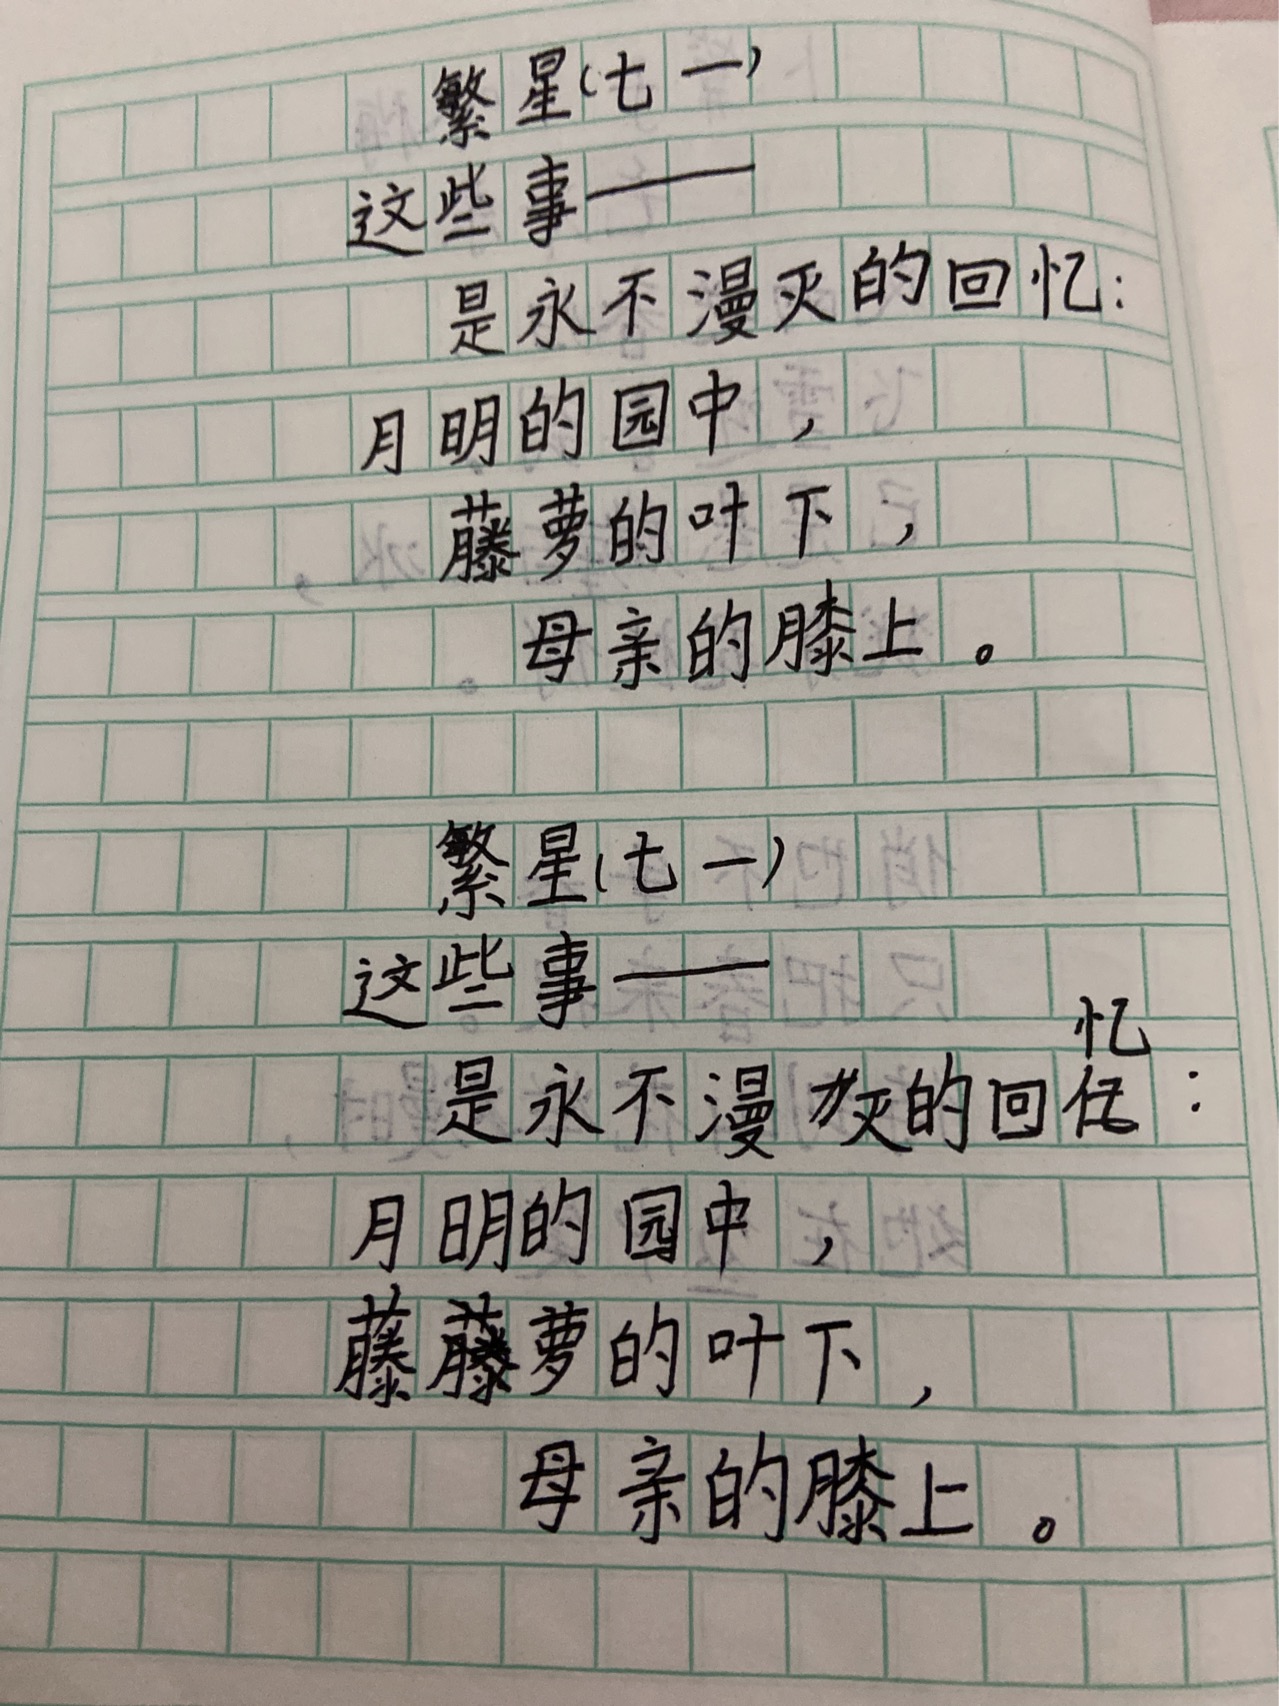 繁星(七一)
这些事——
是永不漫灭的回忆:
月明的园中,
藤萝的叶下,
母亲的膝上。
繁星(七一)
这些事——
忆
是永不漫灭的回:
月明的园中,
藤藤萝的叶下,
母亲的膝上。